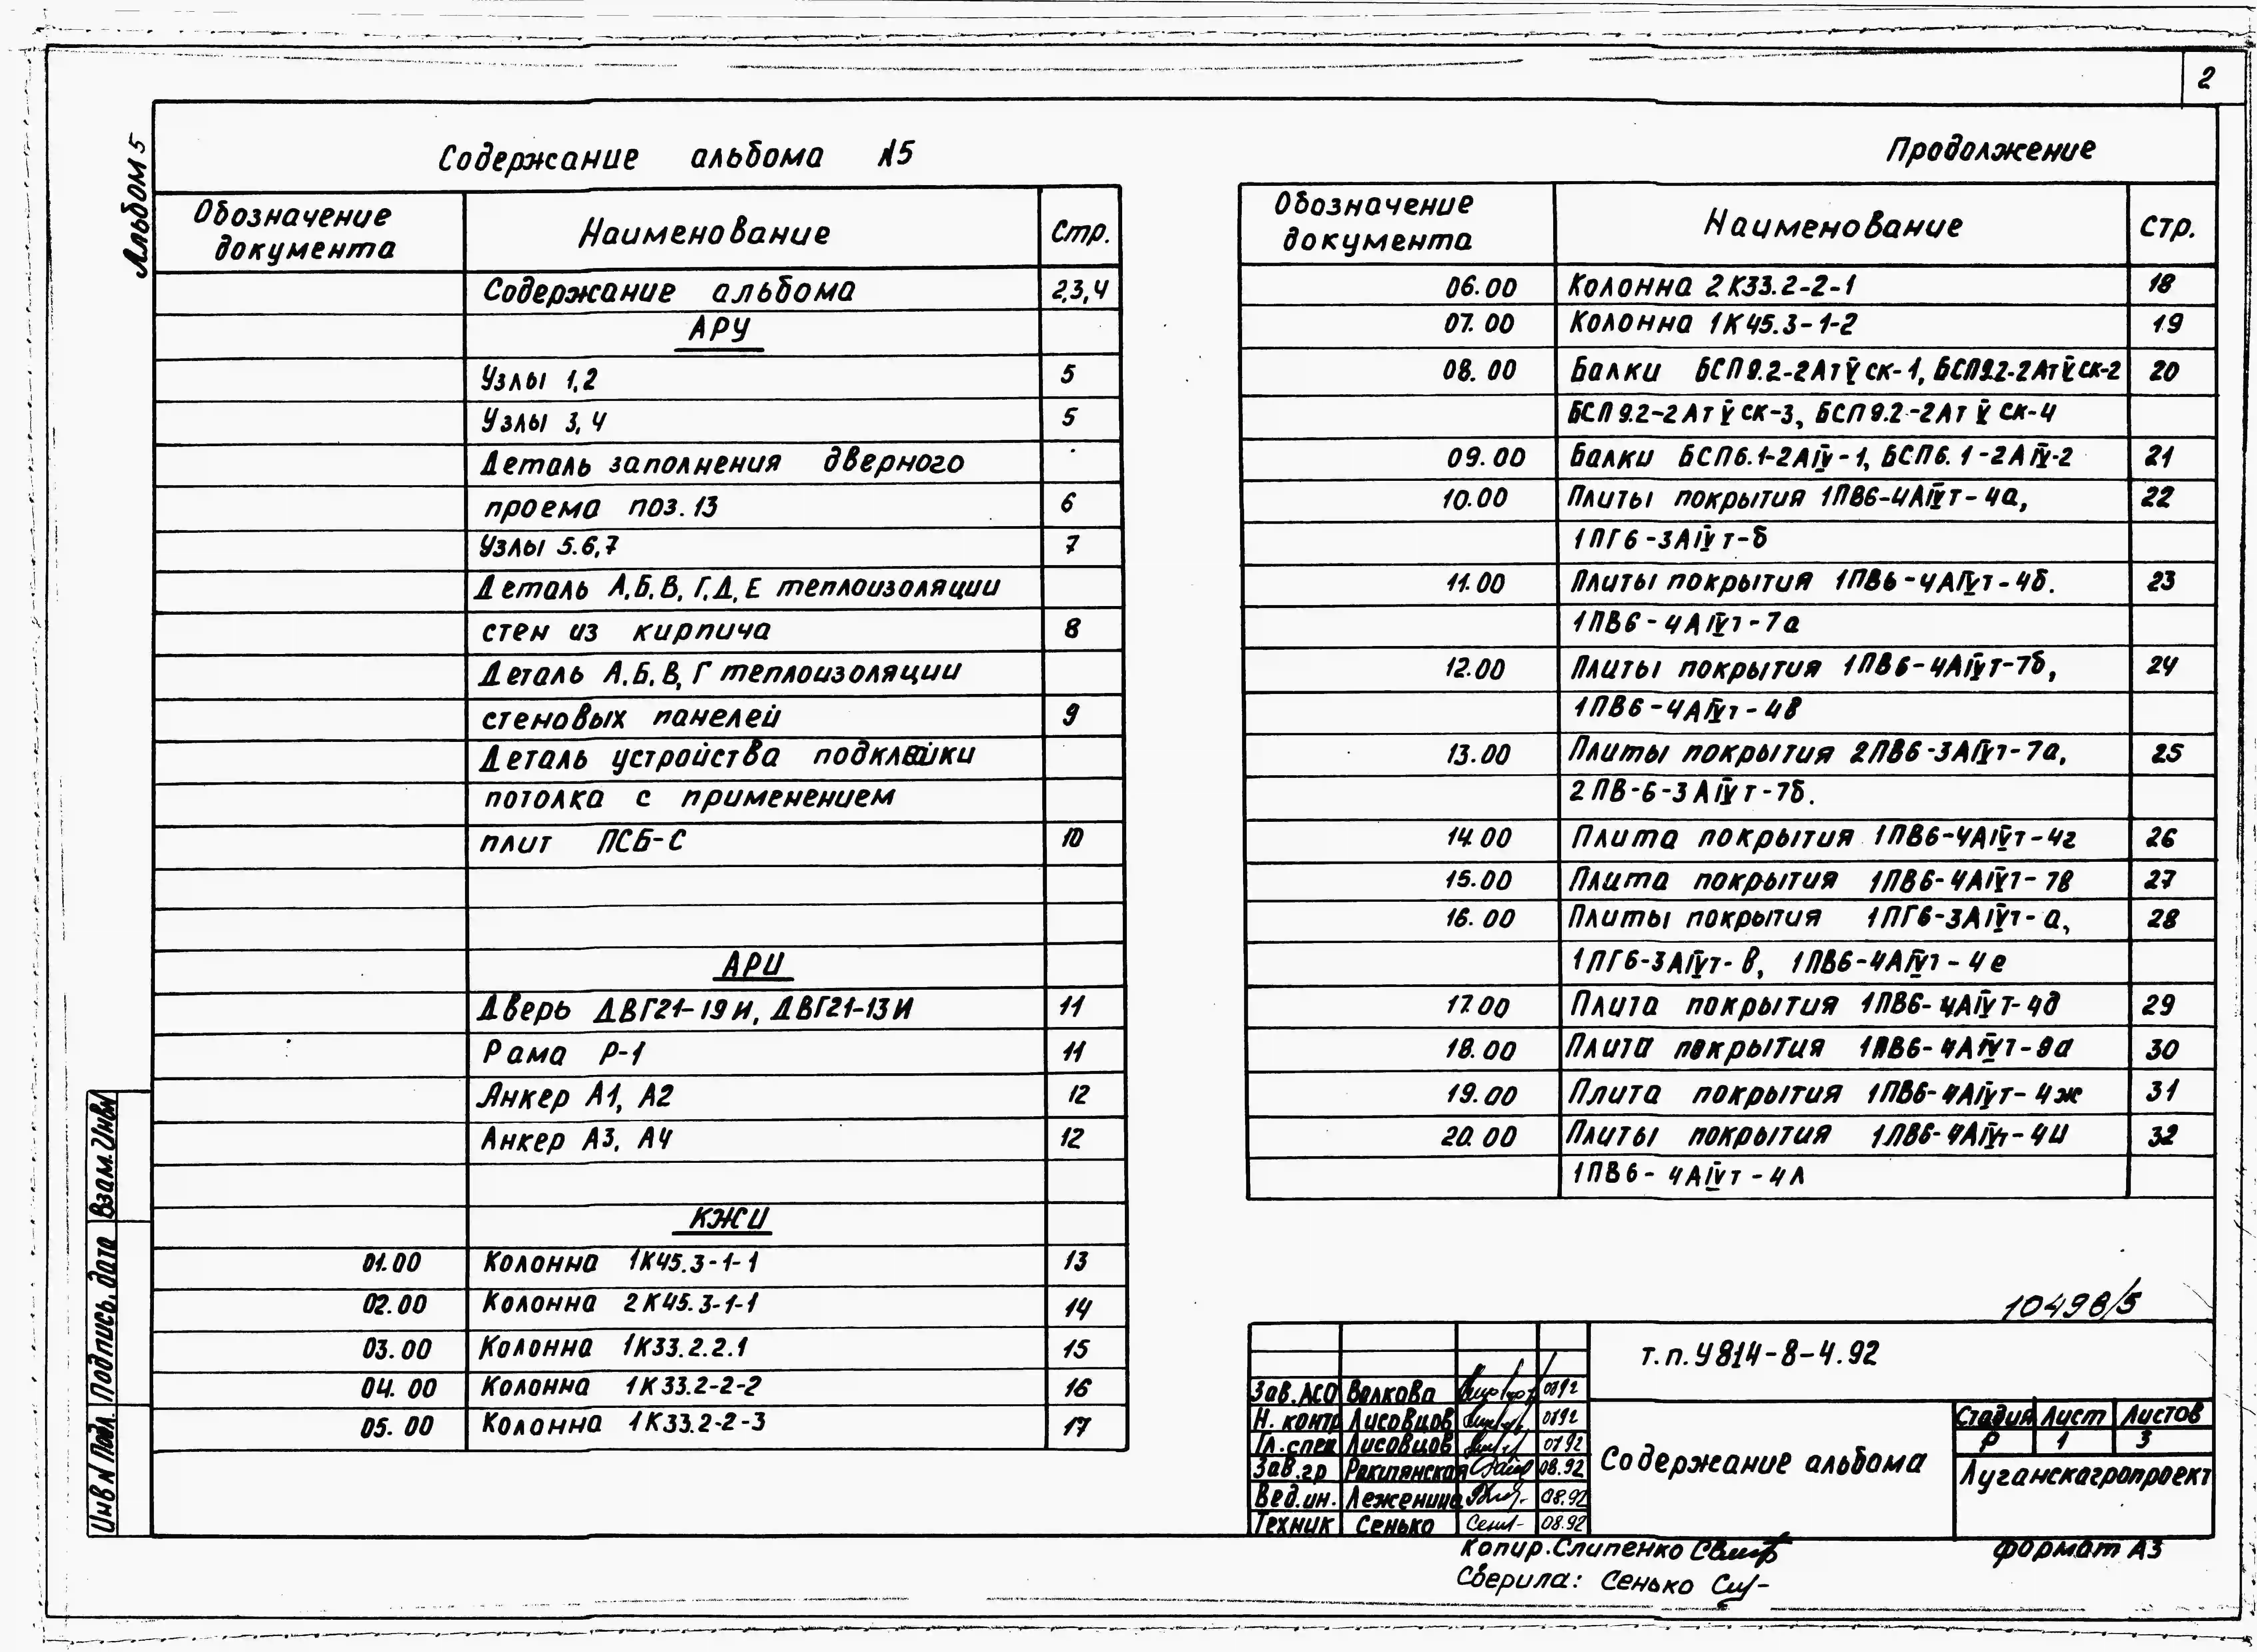 2
Альбом 5
Содержание альбома №5
Обозначение документа | Наименование | Стр.
Содержание альбома | 2,3,4
АРУ
Узлы 1,2 | 5
Узлы 3,4 | 5
Деталь заполнения дверного
проема поз.13 | 6
Узлы 5.6,7 | 7
Деталь А,Б,В,Г,Д,Е теплоизоляции
стен из кирпича | 8
Деталь А,Б,В,Г теплоизоляции
стеновых панелей | 9
Деталь устройства подклейки
потолка с применением
плит ПСБ-С | 10
АРИ
Дверь ДВГ21-19И, ДВГ21-13И | 11
Рама Р-1 | 11
Анкер А1, А2 | 12
Анкер А3, А4 | 12
КЖИ
01.00 | Колонна 1К45.3-1-1 | 13
02.00 | Колонна 2К45.3-1-1 | 14
03.00 | Колонна 1К33.2.2.1 | 15
04.00 | Колонна 1К33.2-2-2 | 16
05.00 | Колонна 1К33.2-2-3 | 17
Продолжение
Обозначение документа | Наименование | стр.
06.00 | Колонна 2К33.2-2-1 | 18
07.00 | Колонна 1К45.3-1-2 | 19
08.00 | Балки БСП9.2-2АтVск-1, БСП9.2-2АтVск-2 | 20
БСП9.2-2АтVск-3, БСП9.2-2АтVск-4
09.00 | Балки БСП6.1-2АIV-1, БСП6.1-2АIV-2 | 21
10.00 | Плиты покрытия 1ПВ6-4АIVт-4а, | 22
1ПГ6-3АIVт-б
11.00 | Плиты покрытия 1ПВ6-4АIVт-4б. | 23
1ПВ6-4АIVт-7а
12.00 | Плиты покрытия 1ПВ6-4АIVт-7б, | 24
1ПВ6-4АIVт-4в
13.00 | Плиты покрытия 2ПВ6-3АIVт-7а, | 25
2ПВ-6-3АIVт-7б.
14.00 | Плита покрытия 1ПВ6-4АIVт-4г | 26
15.00 | Плита покрытия 1ПВ6-4АIVт-7в | 27
16.00 | Плиты покрытия 1ПГ6-3АIVт-а, | 28
1ПГ6-3АIVт-в, 1ПВ6-4АIVт-4е
17.00 | Плита покрытия 1ПВ6-4АIVт-4д | 29
18.00 | Плита покрытия 1ПВ6-4АIVт-9а | 30
19.00 | Плита покрытия 1ПВ6-4АIVт-4ж | 31
20.00 | Плиты покрытия 1ПВ6-4АIVт-4и | 32
1ПВ6-4АIVт-4л
10498/5
т.п.У814-8-4.92
Зав.АСО Волкова
Н. контр Лисовцов
Гл.спец Лисовцов 07 92
Зав.гр 08.92
Вед.ин. 08.92
Техник Сенько 08.92
Содержание альбома
Стадия Лист Листов
Р 1 3
Луганскагропроект
Копир.Слипенко
Формат А3
Сверила: Сенько
Взам.Инв№
Подпись, дата
Инв№ Подл.